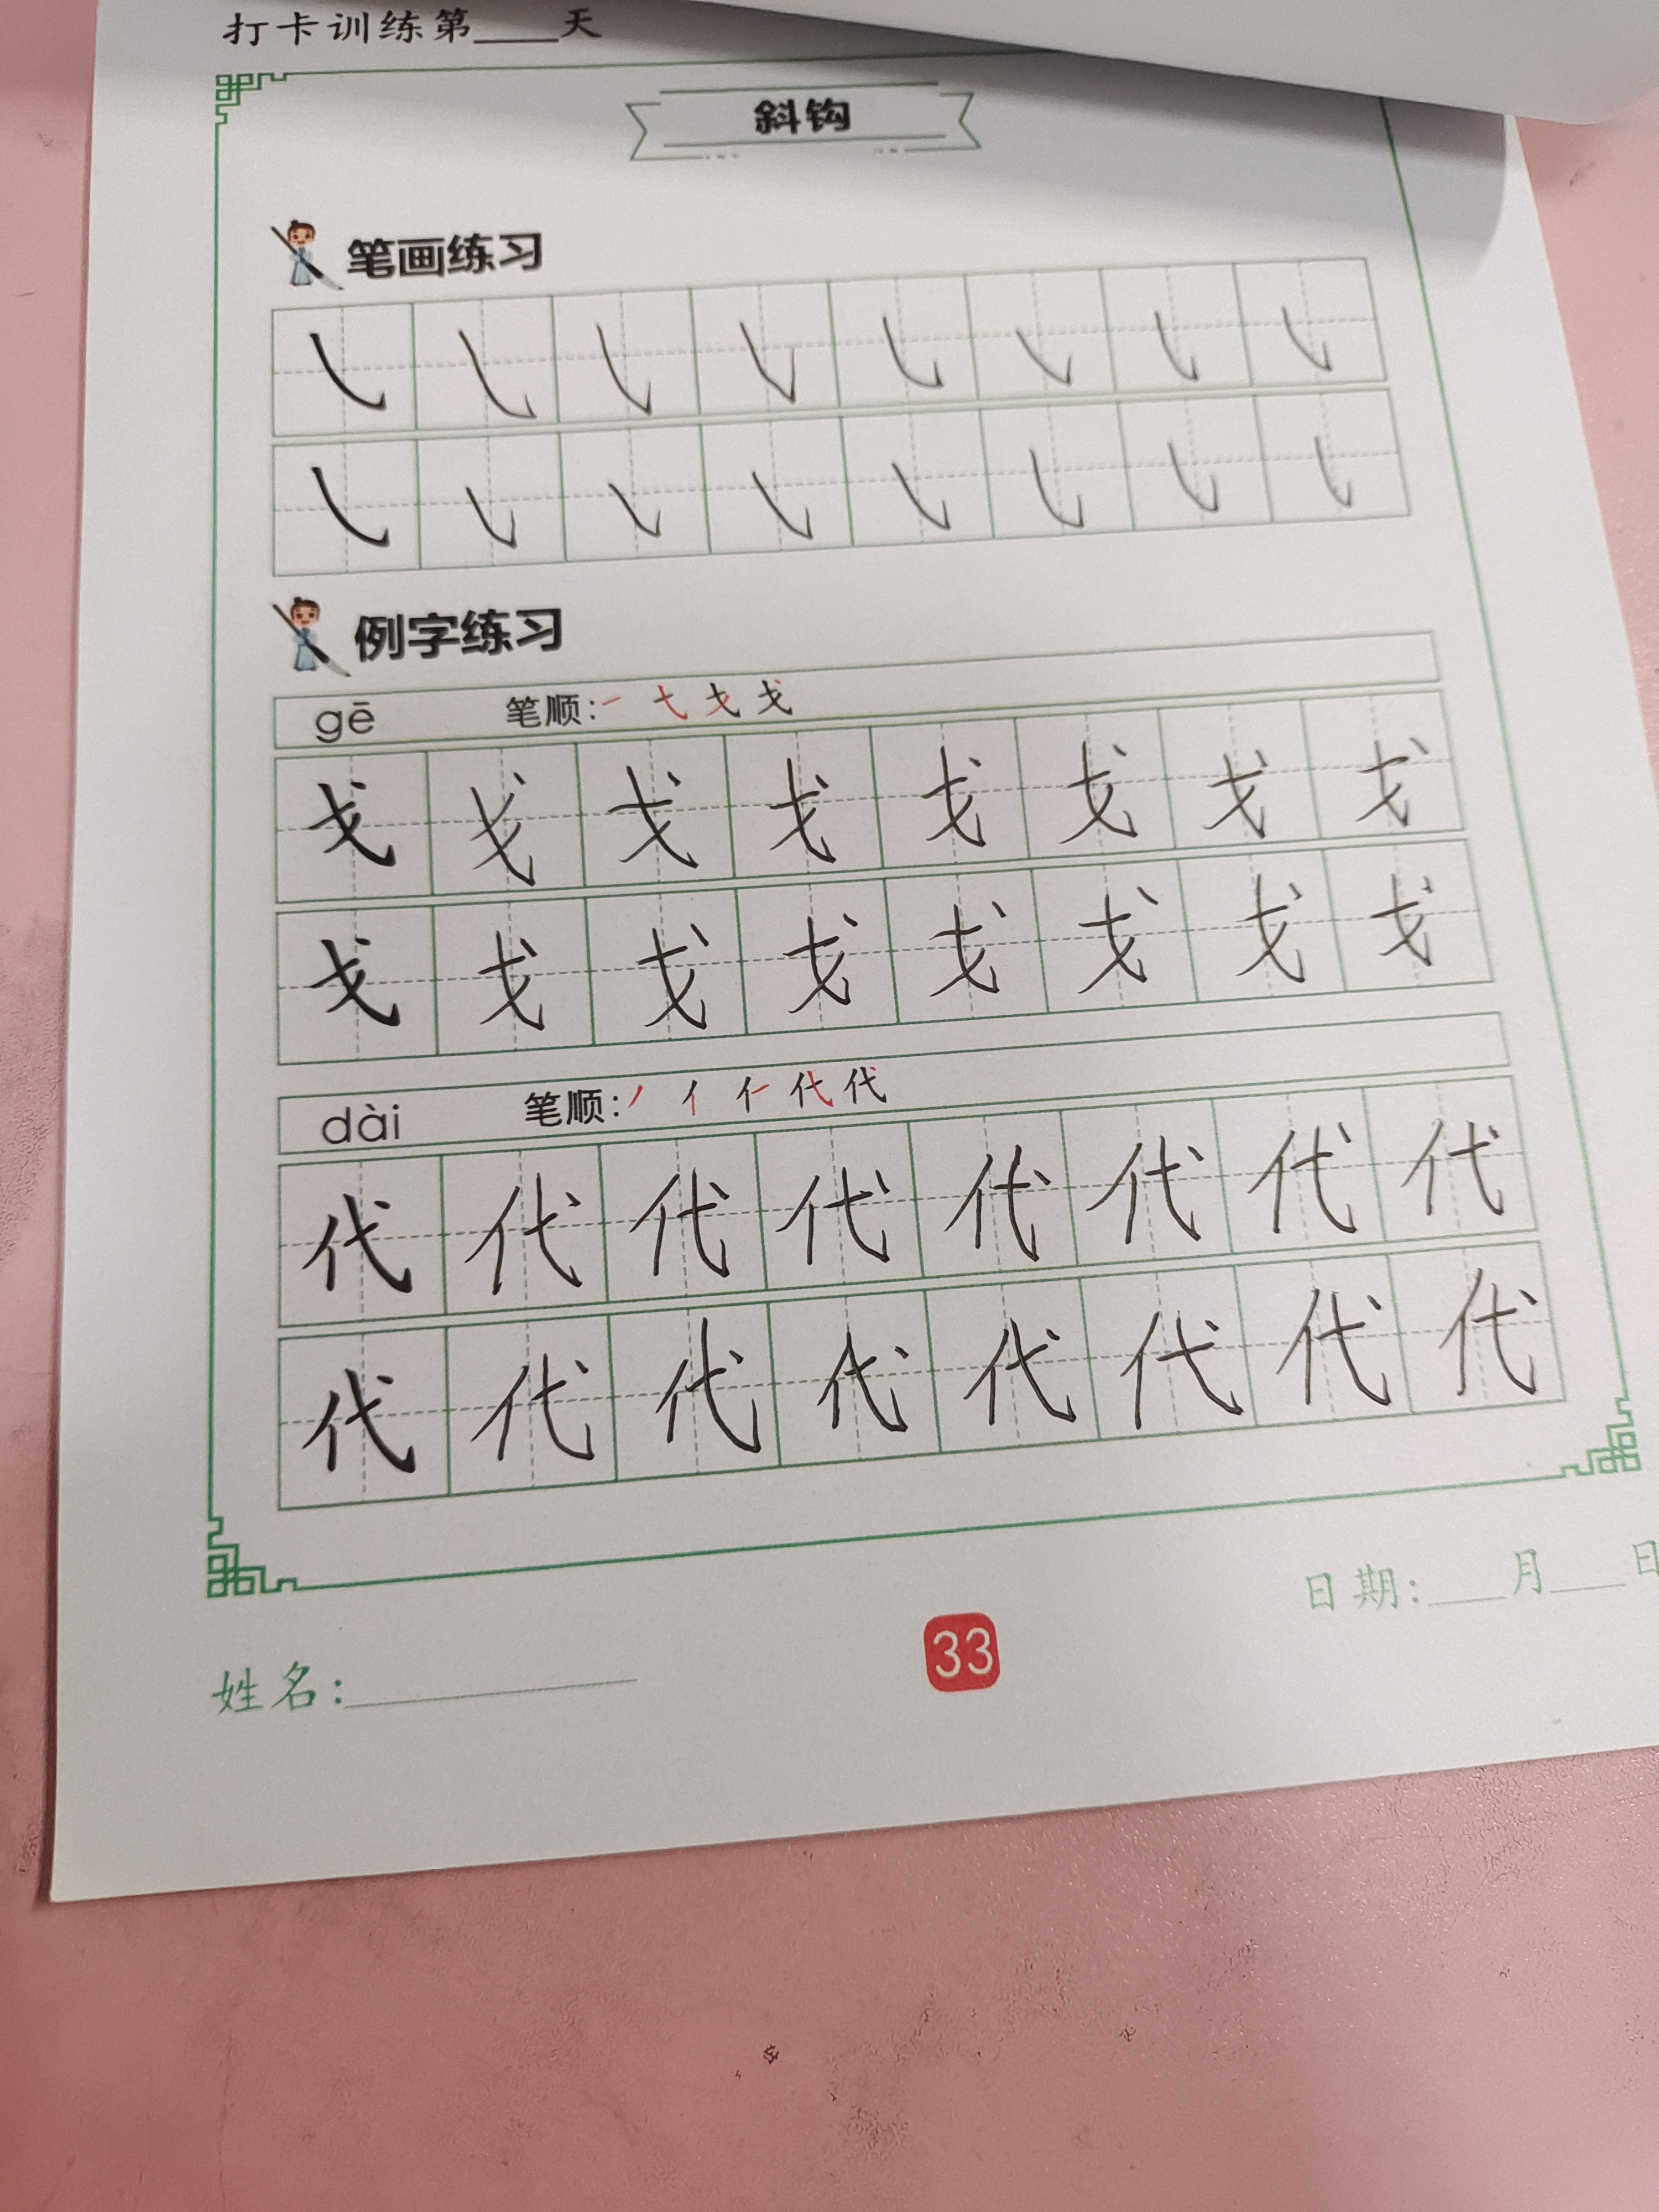 打卡训练第____天
斜钩
笔画练习
㇂ ㇂ ㇂ ㇂ ㇂ ㇂ ㇂ ㇂
㇂ ㇂ ㇂ ㇂ ㇂ ㇂ ㇂ ㇂
例字练习
gē 笔顺:一 弋 戈 戈
戈 戈 戈 戈 戈 戈 戈 戈
戈 戈 戈 戈 戈 戈 戈 戈
dài 笔顺:丿 亻 亻 代 代
代 代 代 代 代 代 代 代
代 代 代 代 代 代 代 代
日期:____月____日
33
姓名:____________